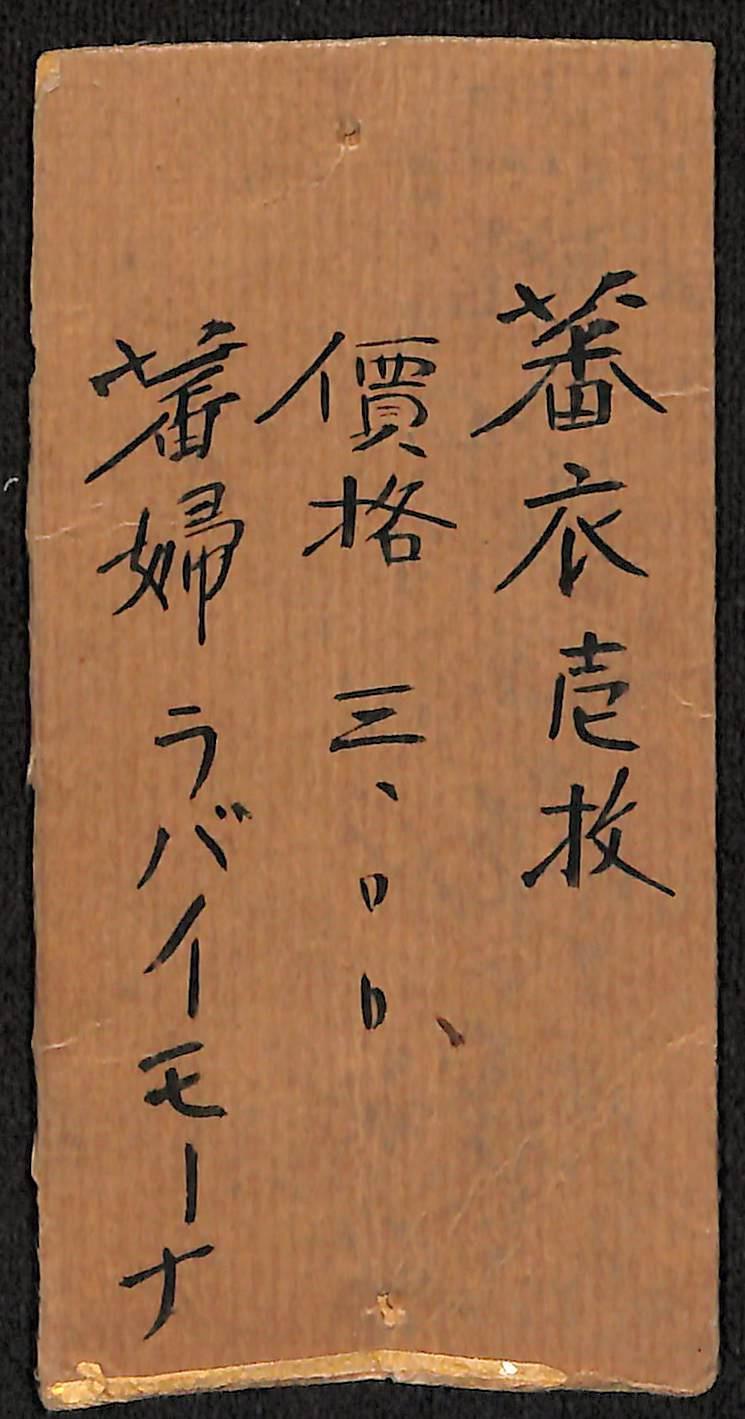 蕃衣壱枚
價格 三、〇〇、
蕃婦 ラバイモーナ